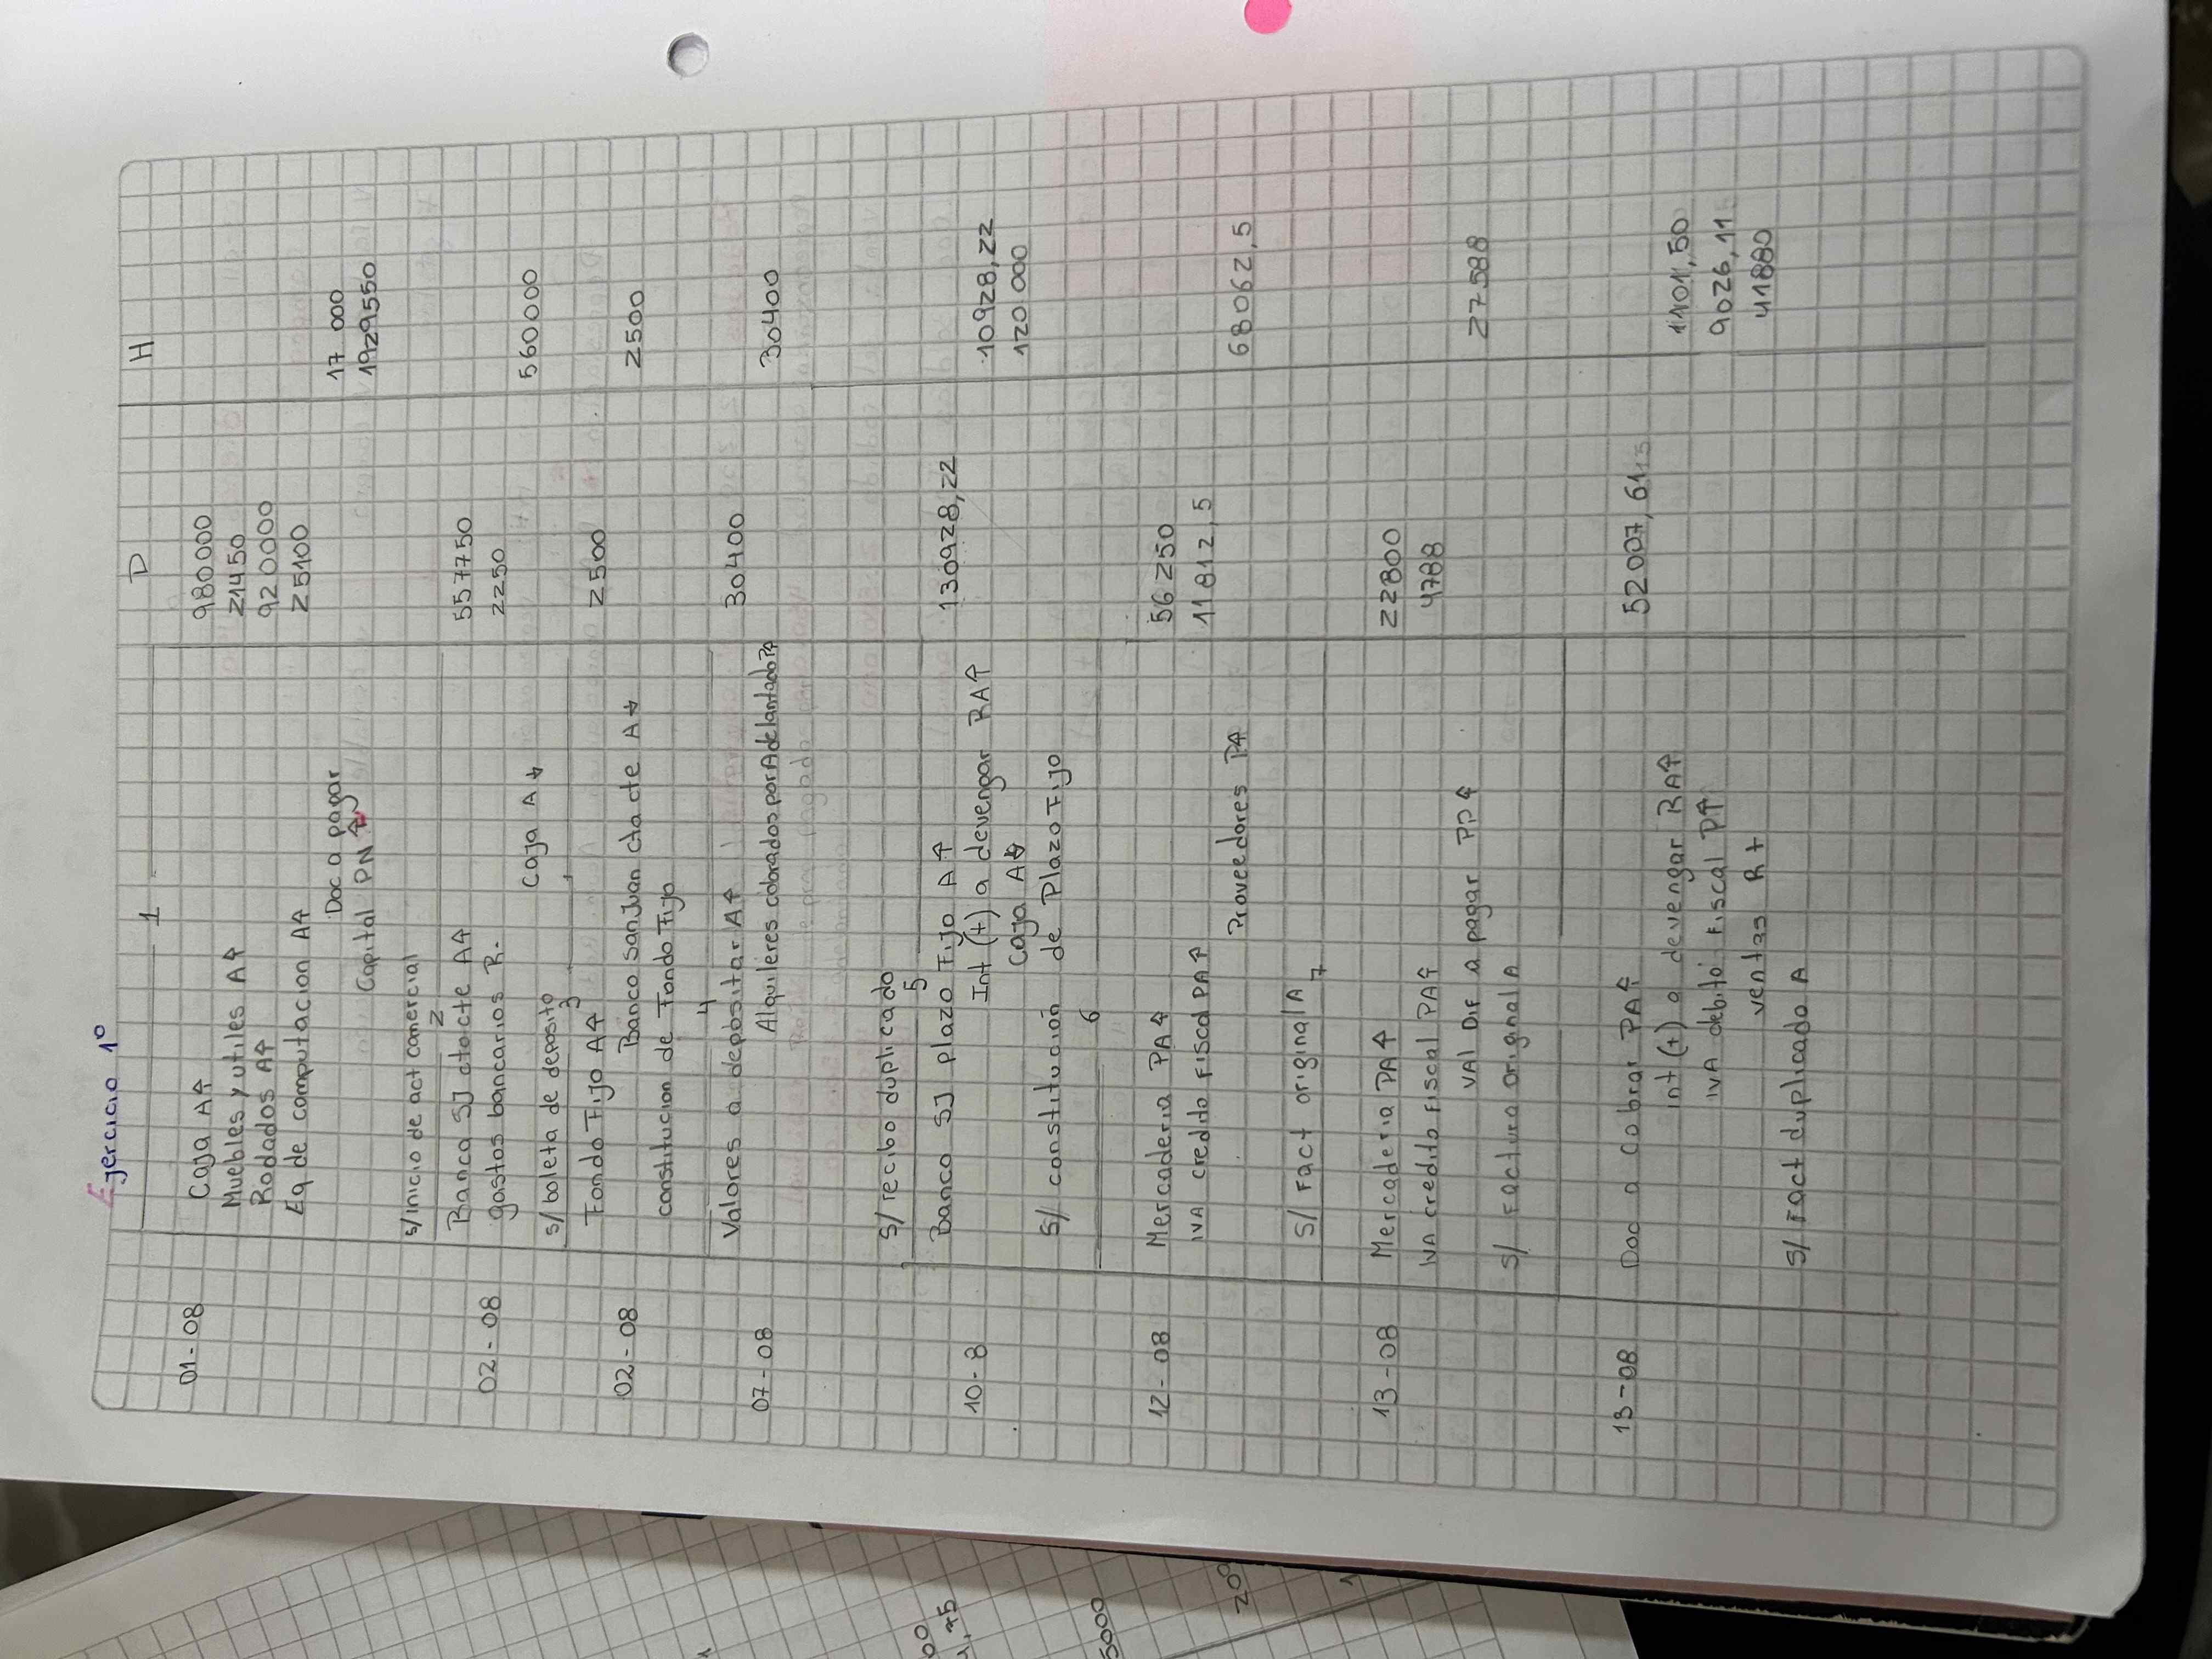 Ejercicio 1º
D H
1
01-08 Caja A↑ 980000
Muebles y utiles A↑ 21450
Rodados A↑ 920000
Eq de computacion A↑ 25100
Doc a pagar 17 000
Capital PN ↑ 1929550
s/inicio de act comercial
2
02-08 Banco SJ ctacte A↑ 557750
gastos bancarios R- 2250
Caja A↓ 560000
s/ boleta de deposito
3
02-08 Fondo Fijo A↑ 2500
Banco San Juan cta cte A↓ 2500
constitucion de Fondo Fijo
4
07-08 Valores a depositar A↑ 30400
Alquileres cobrados por Adelantado P↑ 30400
S/ recibo duplicado
5
10-8 Banco SJ plazo Fijo A↑ 130928,22
Int (+) a devengar RA↑ 10928,22
Caja A↓ 120 000
S/ constitución de Plazo Fijo
6
12-08 Mercaderia PA↑ 56250
IVA credito Fiscal PA↑ 11812,5
Proveedores P↑ 68062,5
S/ Fact original A
7
13-08 Mercaderia PA↑ 22800
IVA credito Fiscal PA↑ 4788
VAl Dif a pagar PP↑ 27588
S/ Factura original A
13-08 Doc a cobrar PA↑ 52007,61
Int (+) a devengar RA↑ 1101,50
IVA debito Fiscal P↑ 9026,11
ventas R+ 41880
S/ Fact duplicado A
5000
200